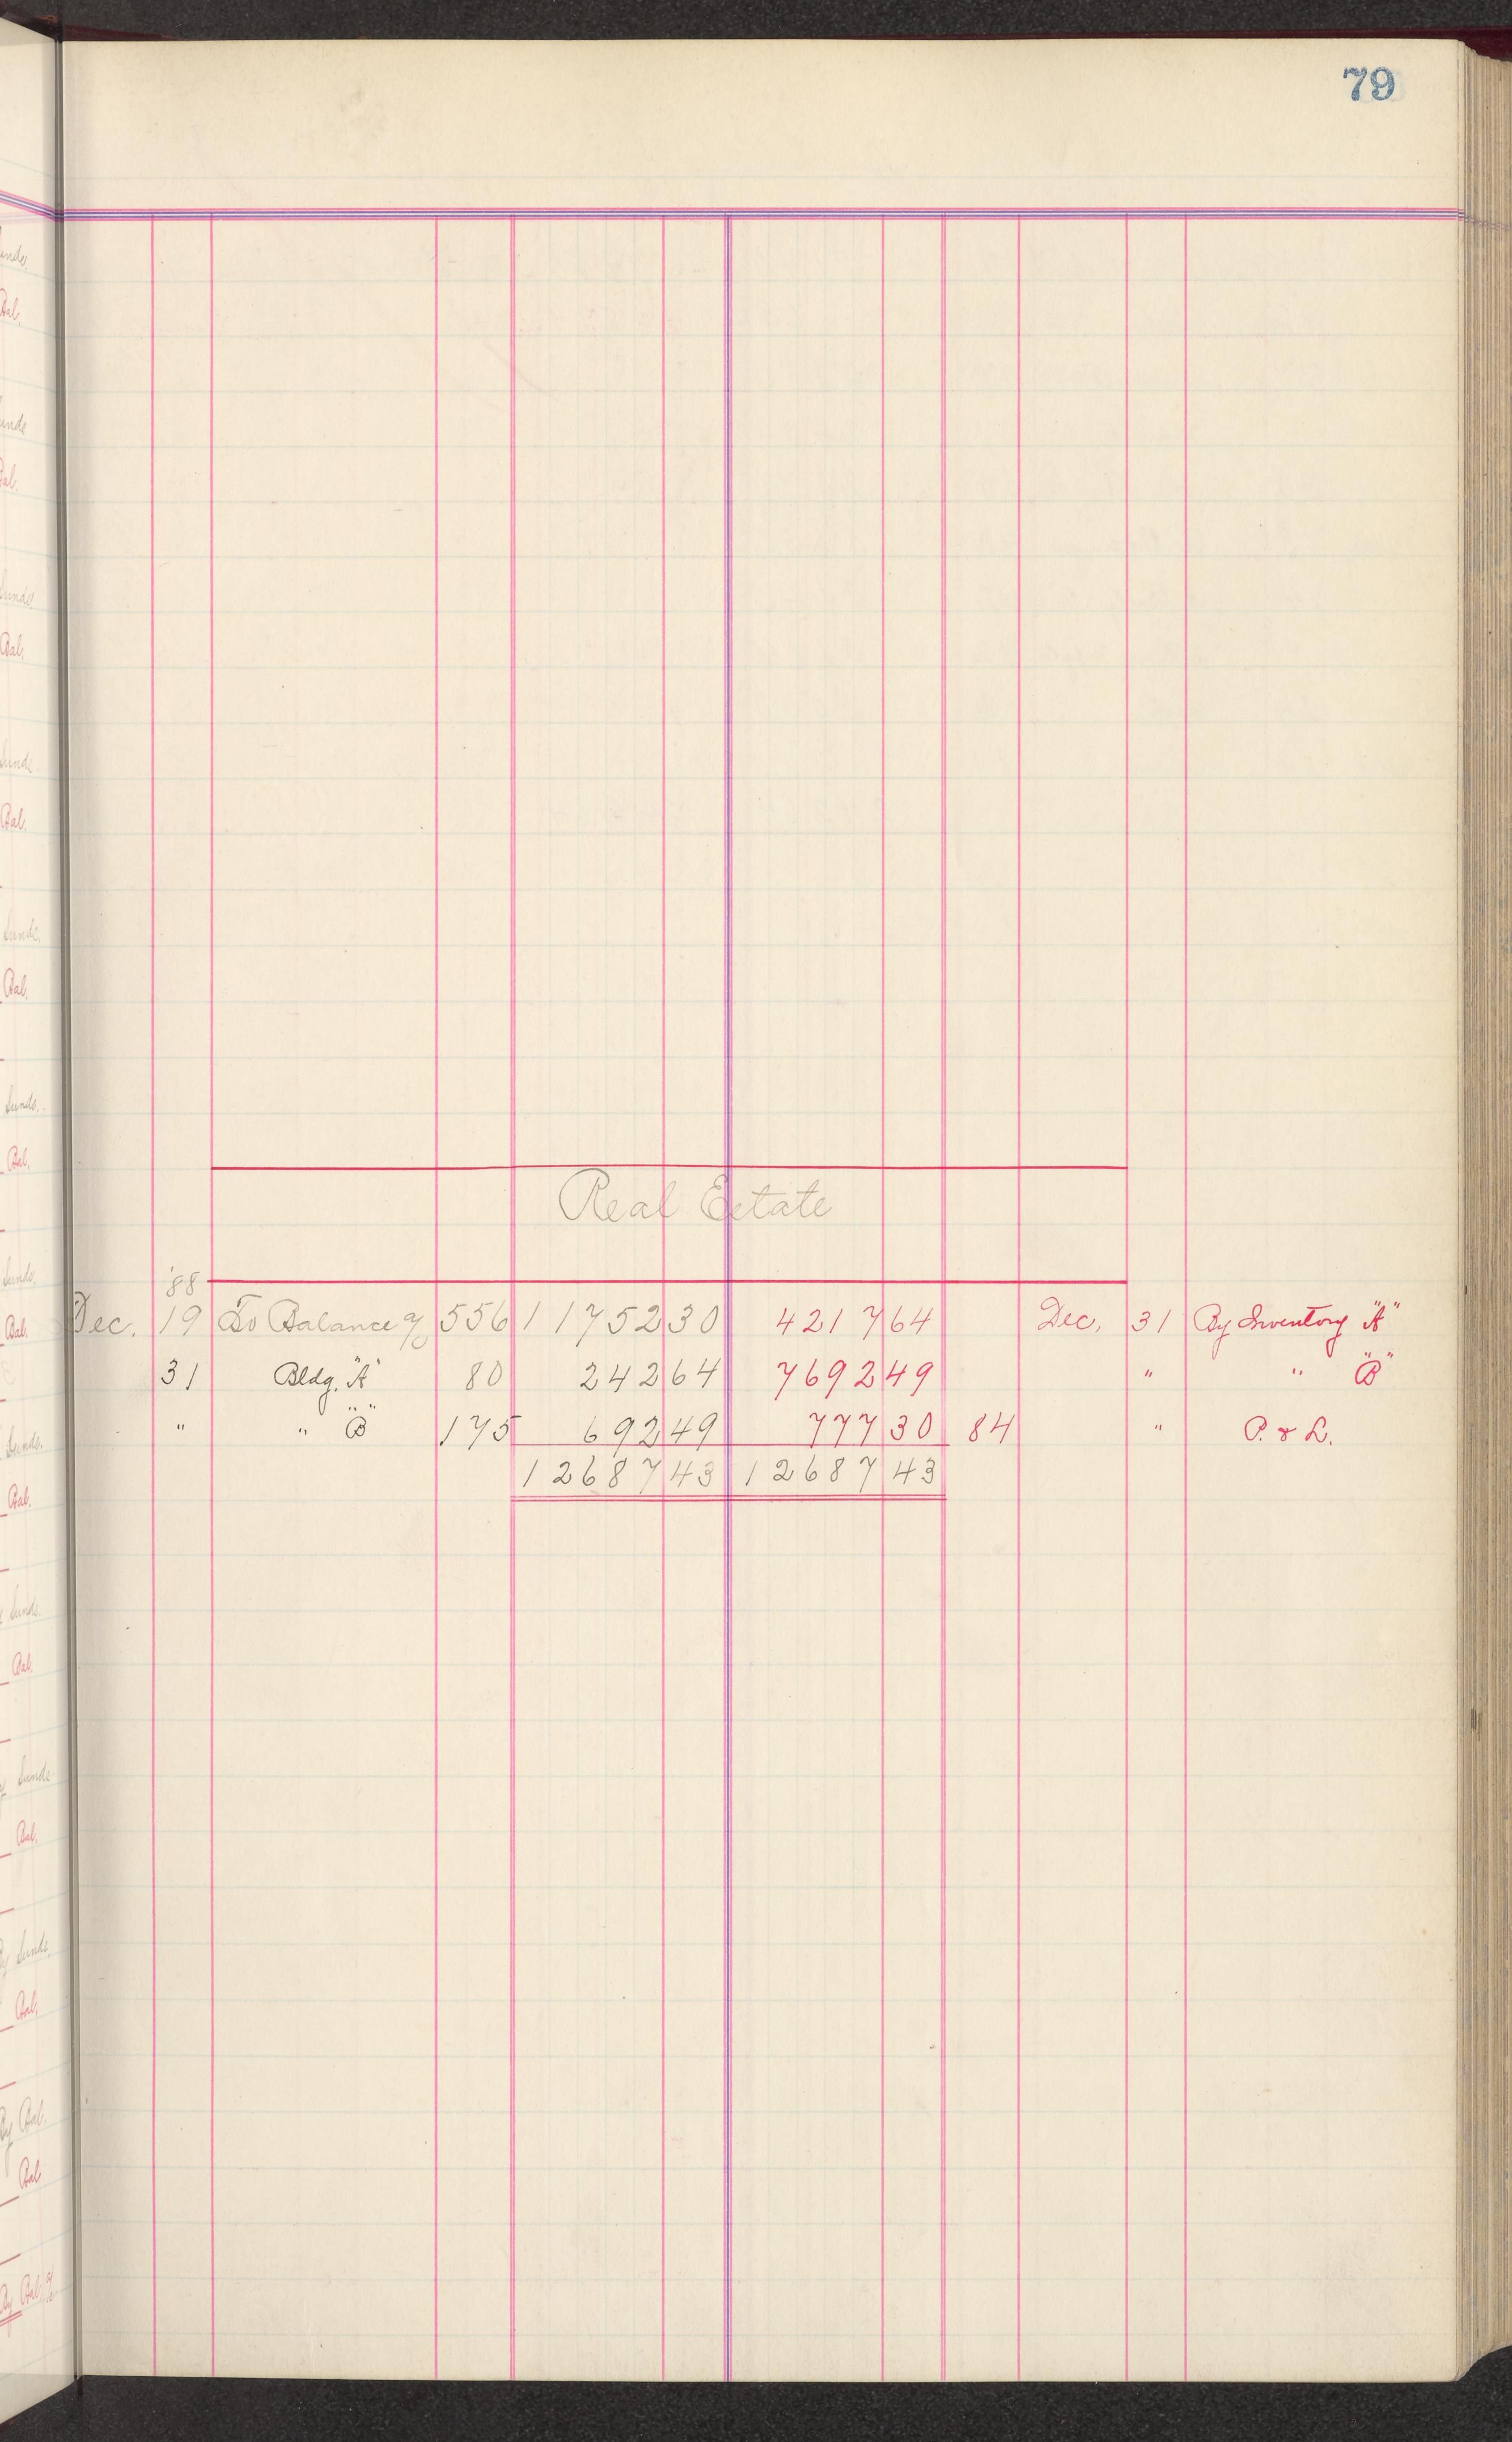 79
Real Estate
'88
Dec. 19 To Balance % 556 11752 30 4217 64 Dec. 31 By Inventory "A"
31 Bldg. "A" 80 242 64 7692 49 " " "B"
" " "B" 175 692 49 777 30 84 " P. & L.
12687 43 12687 43
Sunds.
Bal.
Sunds.
Bal.
Sunds.
Bal.
Sunds.
Bal.
Sunds.
Bal.
Sunds.
Bal.
Sunds.
Bal.
Sunds.
Bal.
Sunds.
Bal.
Sunds.
Bal.
By Sunds.
Bal.
By Bal.
Bal
By Bal.